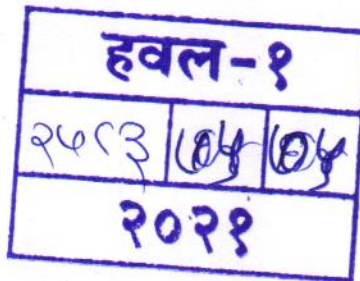 हवल-१
२५८३ ७५ ७५
२०२१